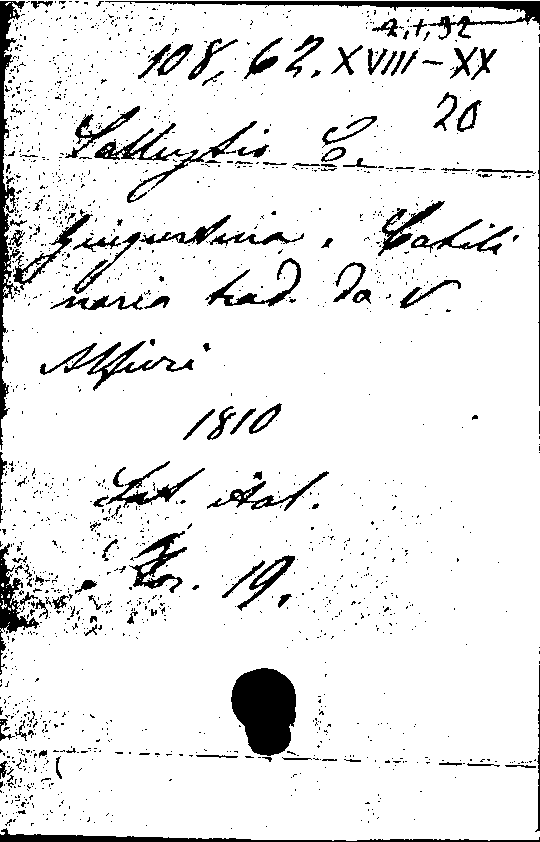 2.1.92
108,62. XVIII-XX
20
Sallustio C.
Giugurtina. Catili
naria trad. da V.
Alfieri
1810
Lat. ital.
19.